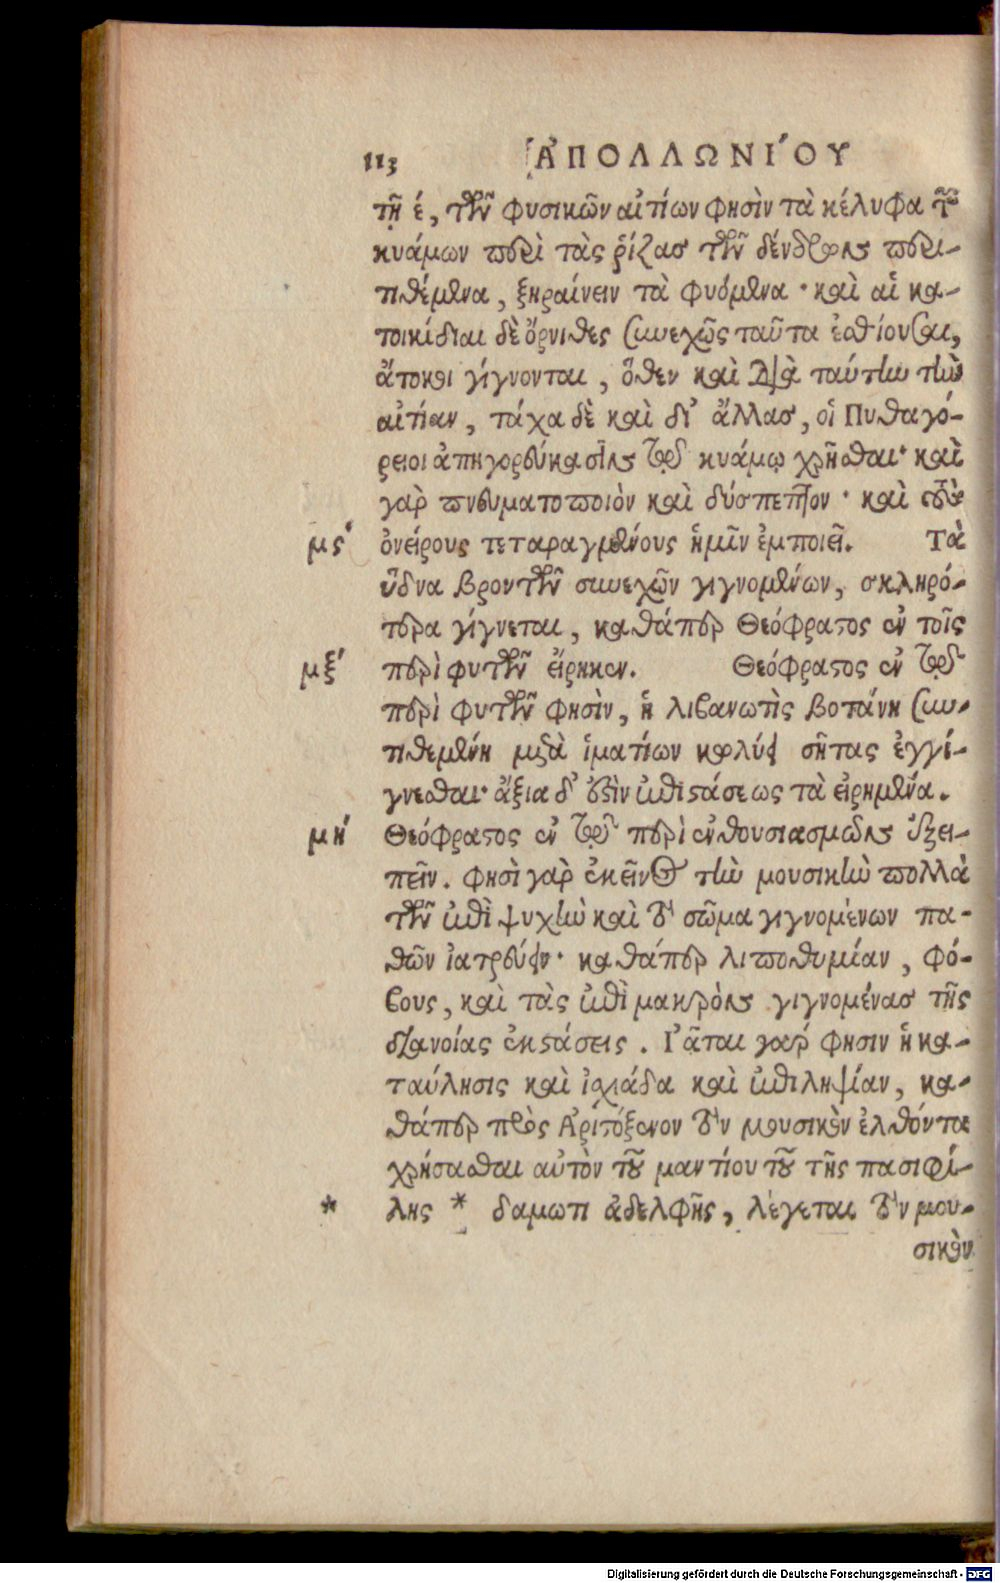 113 ἈΠΟΛΛΩΝΙ´ΟΥ
τῇ έ, τῶν φυσικῶν αἰτίων φησὶν τὰ κέλυφα τῶν
κυάμων περὶ τὰς ῥίζας τῶν δένδροις περι-
τιθέμενα, ξηραίνειν τὰ φυόμενα· καὶ αἱ κα-
τοικίδιαι δὲ ὄρνιθες συνεχῶς ταῦτα ἐσθίουσαι,
ἄτοκοι γίγνονται, ὅθεν καὶ διὰ ταύτην τὴν
αἰτίαν, τάχα δὲ καὶ δι' ἄλλας, οἱ Πυθαγό-
ρειοι ἀπηγορεύκασι τοῖς τῷ κυάμῳ χρῆσθαι· καὶ
γὰρ πνευματοποιὸν καὶ δύσπεπτον· καὶ τοὺς
μϛ´ ὀνείρους τεταραγμένους ἡμῖν ἐμποιεῖ. Τὰ
ὕδνα βροντῶν συνεχῶν γιγνομένων, σκληρό-
τερα γίγνεται, καθάπερ Θεόφραστος ἐν τοῖς
μξ´ περὶ φυτῶν εἴρηκεν. Θεόφραστος ἐν τῷ
περὶ φυτῶν φησὶν, ἡ λιβανωτὶς βοτάνη συν-
τιθεμένη μετὰ ἱματίων κωλύει σῆτας ἐγγί-
γνεσθαι· ἄξια δ' ἐστὶν ἐπιστάσεως τὰ εἰρημένα.
μή Θεόφραστος ἐν τῷ περὶ ἐνθουσιασμῶν ἐξει-
πεῖν. φησὶ γὰρ ἐκεῖνος τὴν μουσικὴν πολλὰ
τῶν ἐπὶ ψυχὴν καὶ τὸ σῶμα γιγνομένων πα-
θῶν ἰατρεύειν· καθάπερ λιποθυμίαν, φό-
βους, καὶ τὰς ἐπὶ μακρὸν γιγνομένας τῆς
διανοίας ἐκστάσεις. Ἰᾶται γάρ φησιν ἡ κα-
ταύλησις καὶ ἰσχιάδα καὶ ἐπιληψίαν, κα-
θάπερ πρὸς Ἀριστόξενον τὸν μουσικὸν ἐλθόντα
χρήσασθαι αὐτὸν τοῦ μαντίου τοῦ τῆς πασιφί-
* λης * δαμωτι ἀδελφῆς, λέγεται τὸν μου-
σικὸν
Digitalisierung gefördert durch die Deutsche Forschungsgemeinschaft - DFG